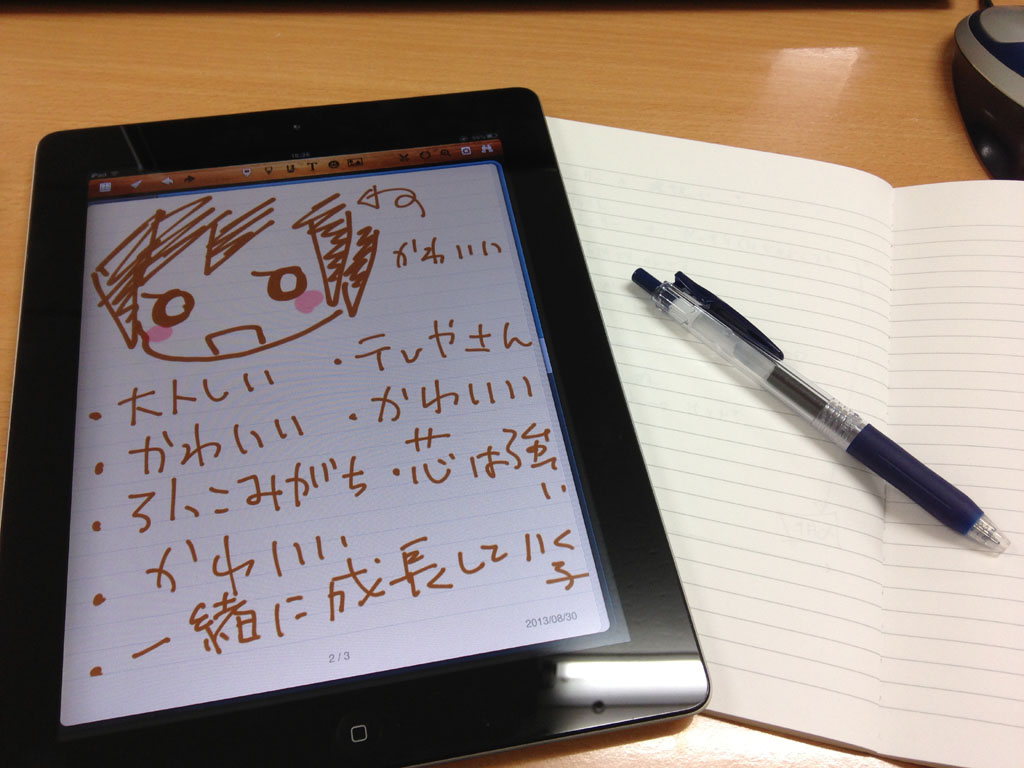 iPad
かわいい
・大人しい ・テレやさん
・かわいい ・かわいい
・こみがち ・芯は強い
・かわいい
・一緒に成長していく子
2013/08/30
2/3